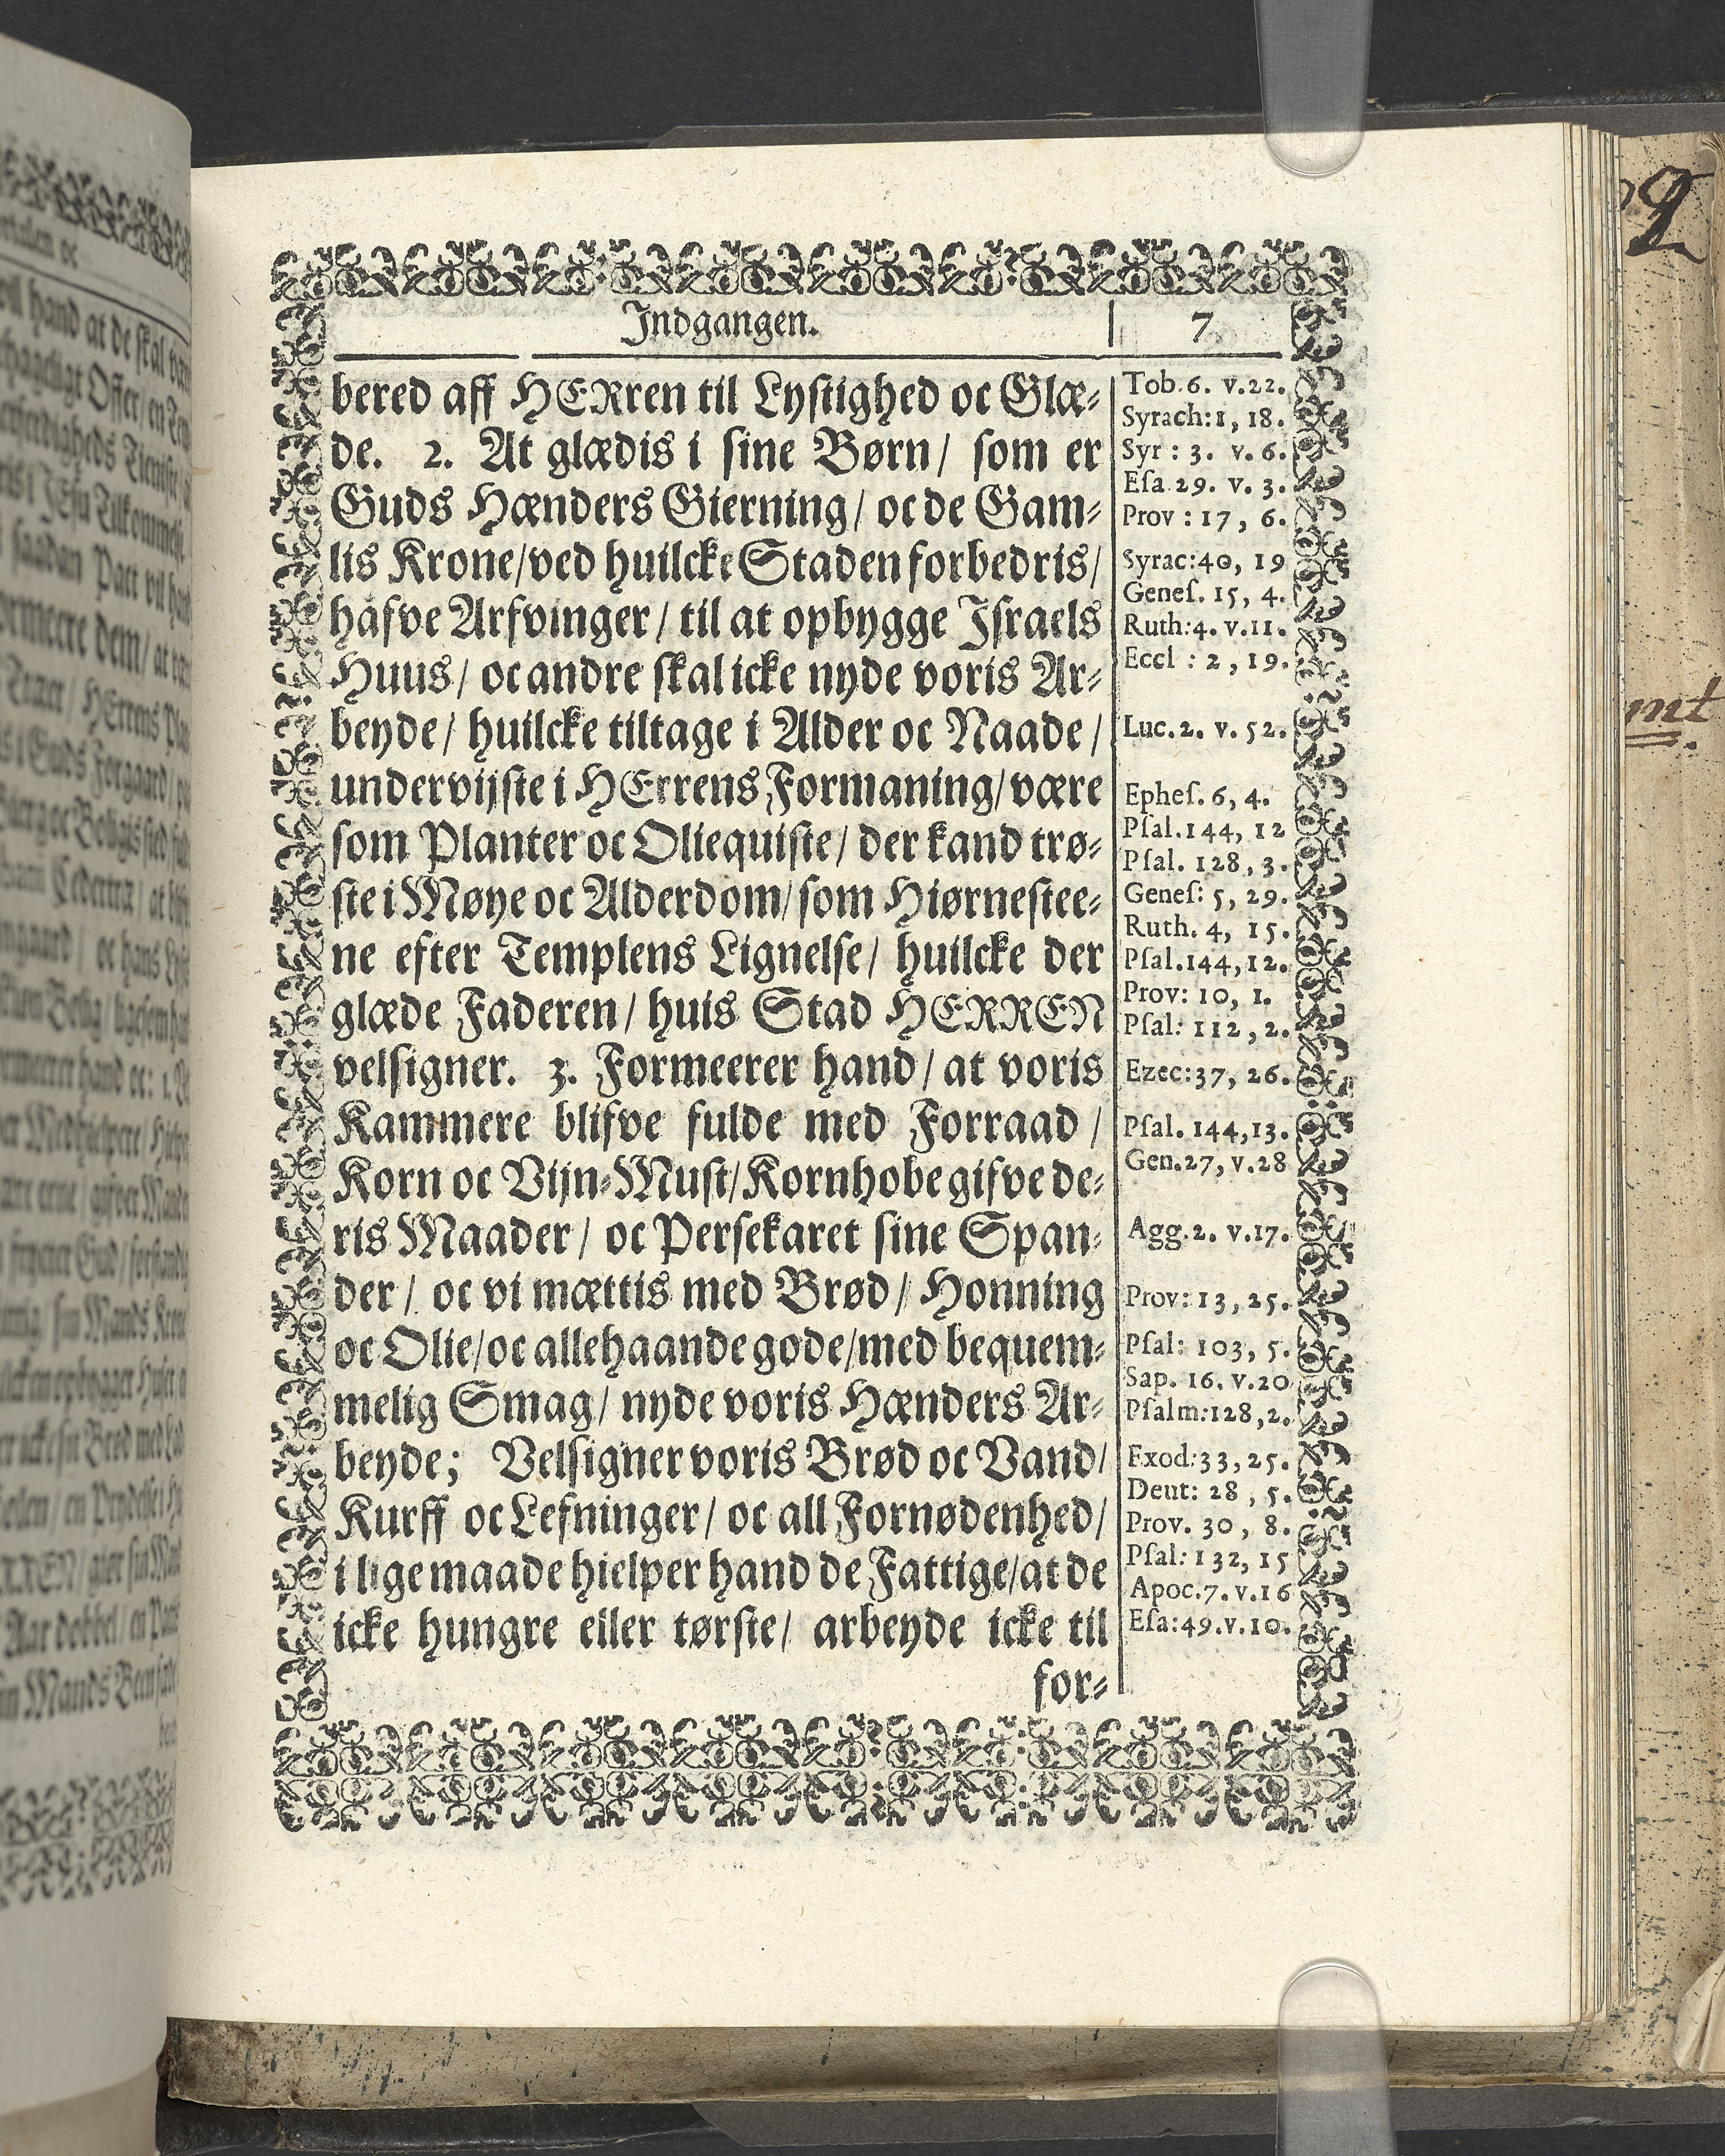 Indgangen.
7
bered aff HERren til Lystighed oc Glæ-
de. 2. At glædis i sine Børn/ som er
Guds Hænders Gierning/ oc de Gam-
lis Krone/ved huilcke Staden forbedris/
hafve Arfvinger/ til at opbygge Jsraels
Huus/ oc andre skal icke nyde voris Ar-
beyde/ huilcke tiltage i Alder oc Naade/
undervijste i HErrens Formaning/være
som Planter oc Oliequiste/ der kand trø-
ste i Møye oc Alderdom/som Hiørnestee-
ne efter Templens Lignelse/ huilcke der
glæde Faderen/ huis Stad HERREN
velsigner. 3. Formeerer hand/ at voris
Kammere blifve fulde med Forraad/
Korn oc Vijn-Must/Kornhobe gifve de-
ris Maader/ oc Persekaret sine Span-
der/ oc vi mættis med Brød/ Honning
oc Olie/oc allehaande gode/med bequem-
melig Smag/ nyde voris Hænders Ar-
beyde; Velsigner voris Brød oc Vand/
Kurff oc Lefninger/ oc all Fornødenhed/
i lige maade hielper hand de Fattige/at de
icke hungre eller tørste/ arbeyde icke til
for-
Tob.6. v.22.
Syrach:1, 18.
Syr: 3. v. 6.
Esa.29. v. 3.
Prov: 17, 6.
Syrac:40, 19
Genes. 15, 4.
Ruth:4. v.11.
Eccl: 2, 19.
Luc.2. v. 52.
Ephes. 6, 4.
Psal.144, 12
Psal. 128, 3.
Genes: 5, 29.
Ruth. 4, 15.
Psal.144,12.
Prov: 10, 1.
Psal: 112, 2.
Ezec:37, 26.
Psal. 144,13.
Gen.27, v.28
Agg.2. v.17.
Prov: 13, 25.
Psal: 103, 5.
Sap. 16. v.20
Psalm:128,2.
Exod:33, 25.
Deut: 28, 5.
Prov. 30, 8.
Psal: 132, 15
Apoc.7. v.16
Esa:49.v.10.